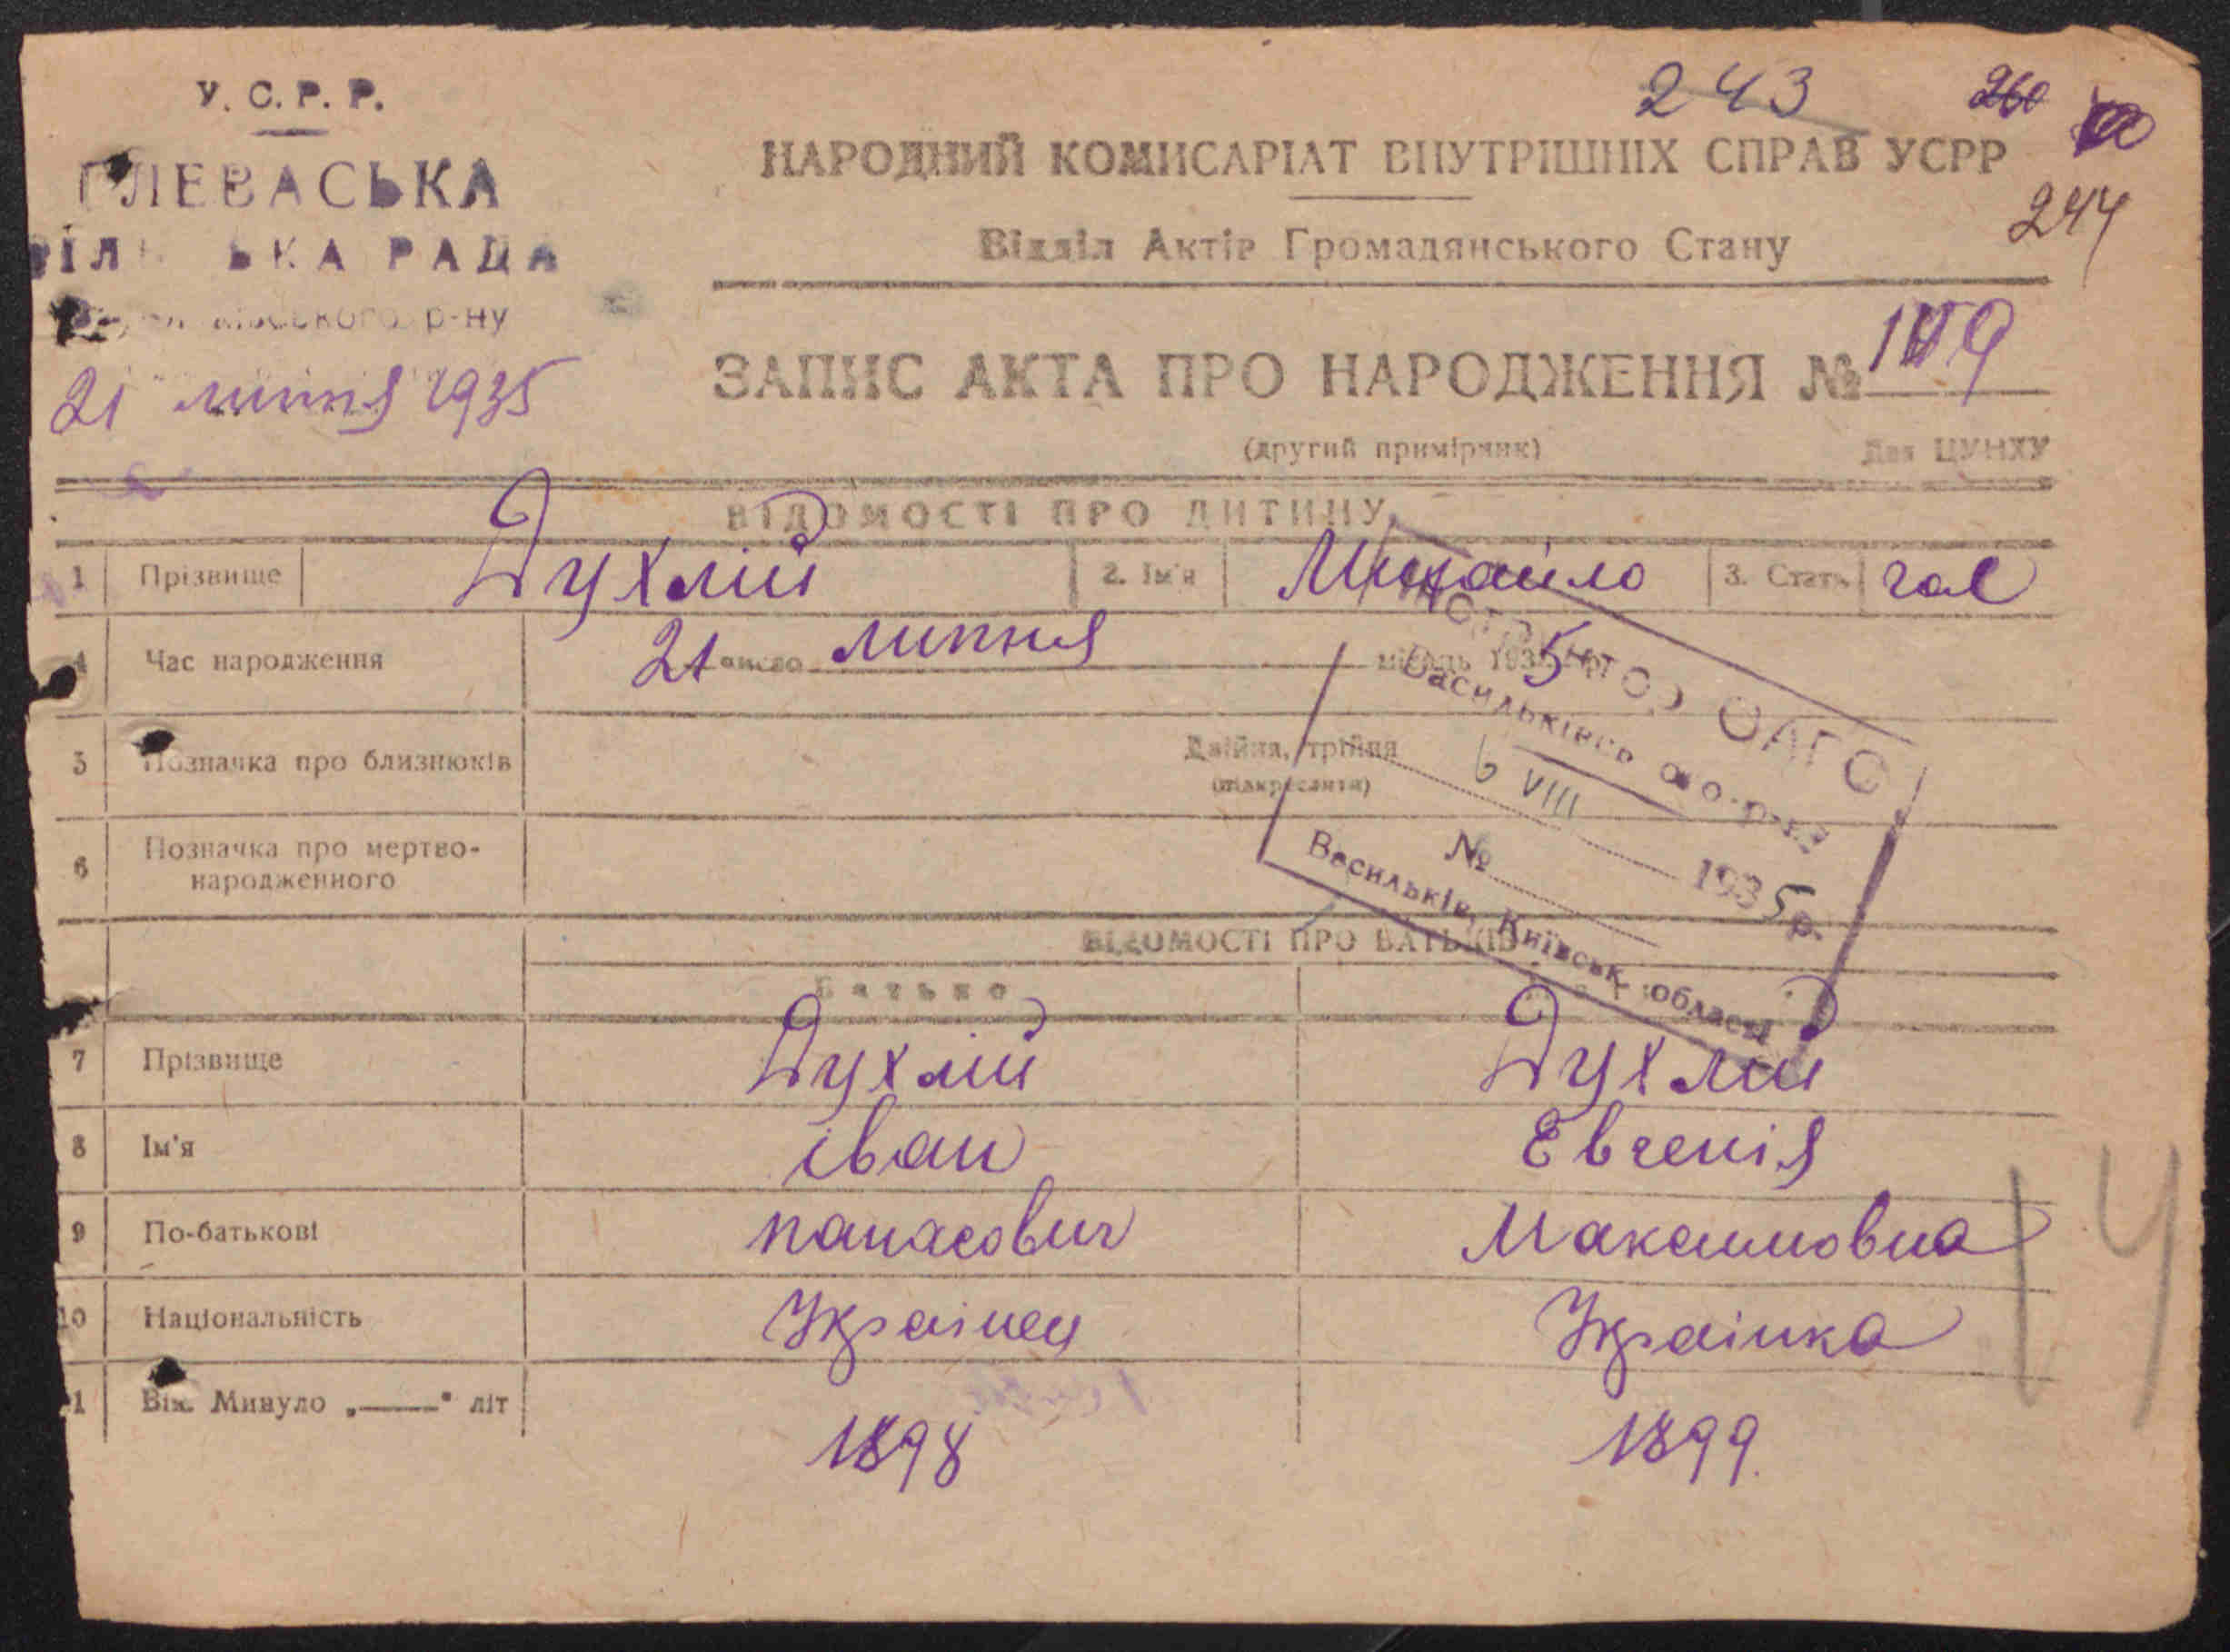 У. С. Р. Р.
ГЛЕВАСЬКА
РАДА
р-ну
21 липня 1935
243
260
244
НАРОДНИЙ КОМИСАРІАТ ВНУТРІШНІХ СПРАВ УСРР
Відділ Актів Громадянського Стану
ЗАПИС АКТА ПРО НАРОДЖЕННЯ №
(другий примірник) Для ЦУНХУ
ВІДОМОСТІ ПРО ДИТИНУ
1 Прізвище Духлій 2. Ім'я Михайло 3. Стать чол
4 Час народження 21 число липня місяць 1935 р.
5 Позначка про близнюків Двійня, трійня
(підкреслити)
6 Позначка про мертво-
народженного
ОАГС
Васильківського р-ну
6 VIII 1935 р.
№
Васильків, Київськ. області
ВІДОМОСТІ ПРО БАТЬКІВ
Батько
7 Прізвище Духлій Духлій
8 Ім'я іван Евгенія
9 По-батькові панасович Максимовна
10 Національність Українец Українка
11 Вік. Минуло „——" літ 1898 1899.
14